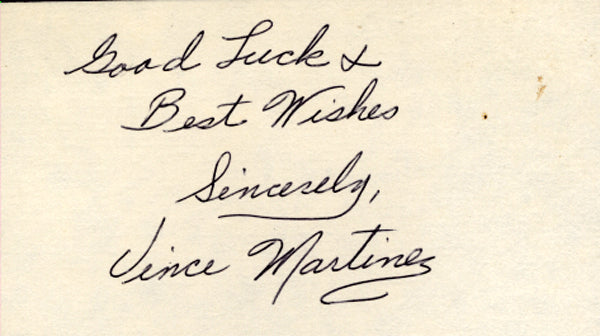 Good Luck &
Best Wishes
Sincerely,
Vince Martinez